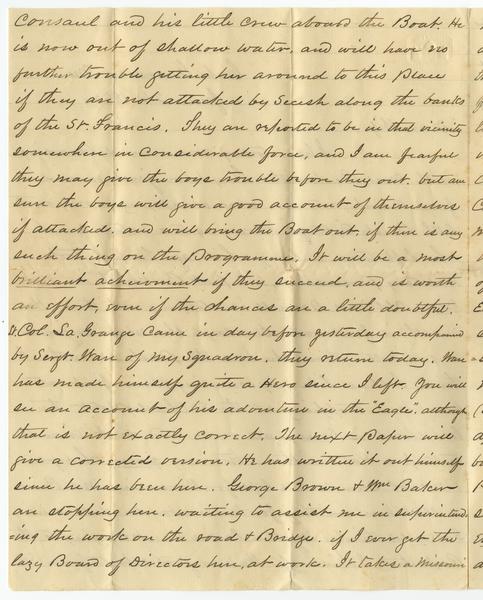 Consaul and his little crew aboard the Boat. He
is now out of shallow water, and will have no
further trouble getting her around to this Place
if they are not attacked by Secesh along the banks
of the St. Francis. They are reported to be in that vicinity
somewhere in considerable force, and I am fearful
they may give the boys trouble before they out. but am
sure the boys will give a good account of themselves
if attacked. and will bring the Boat out, if there is any
such thing on the Programme. It will be a most
brilliant achievment if they succeed, and is worth
an effort, even if the chances are a little doubtful.
Lt. Col. La. Grange came in day before yesterday accompanied
by Sergt. Ware of my Squadron. they return today. Ware
has made himself quite a Hero since I left. You will
see an account of his adventure in the "Eagle". although
that is not exactly correct. The next Paper will
give a corrected version. He has written it out himself
since he has been here. George Brown & Wm Baker
are stopping here. waiting to assist me in superintend-
-ing the work on the road & Bridge. if I ever get the
lazy Board of Directors here, at work. It takes a Missouri